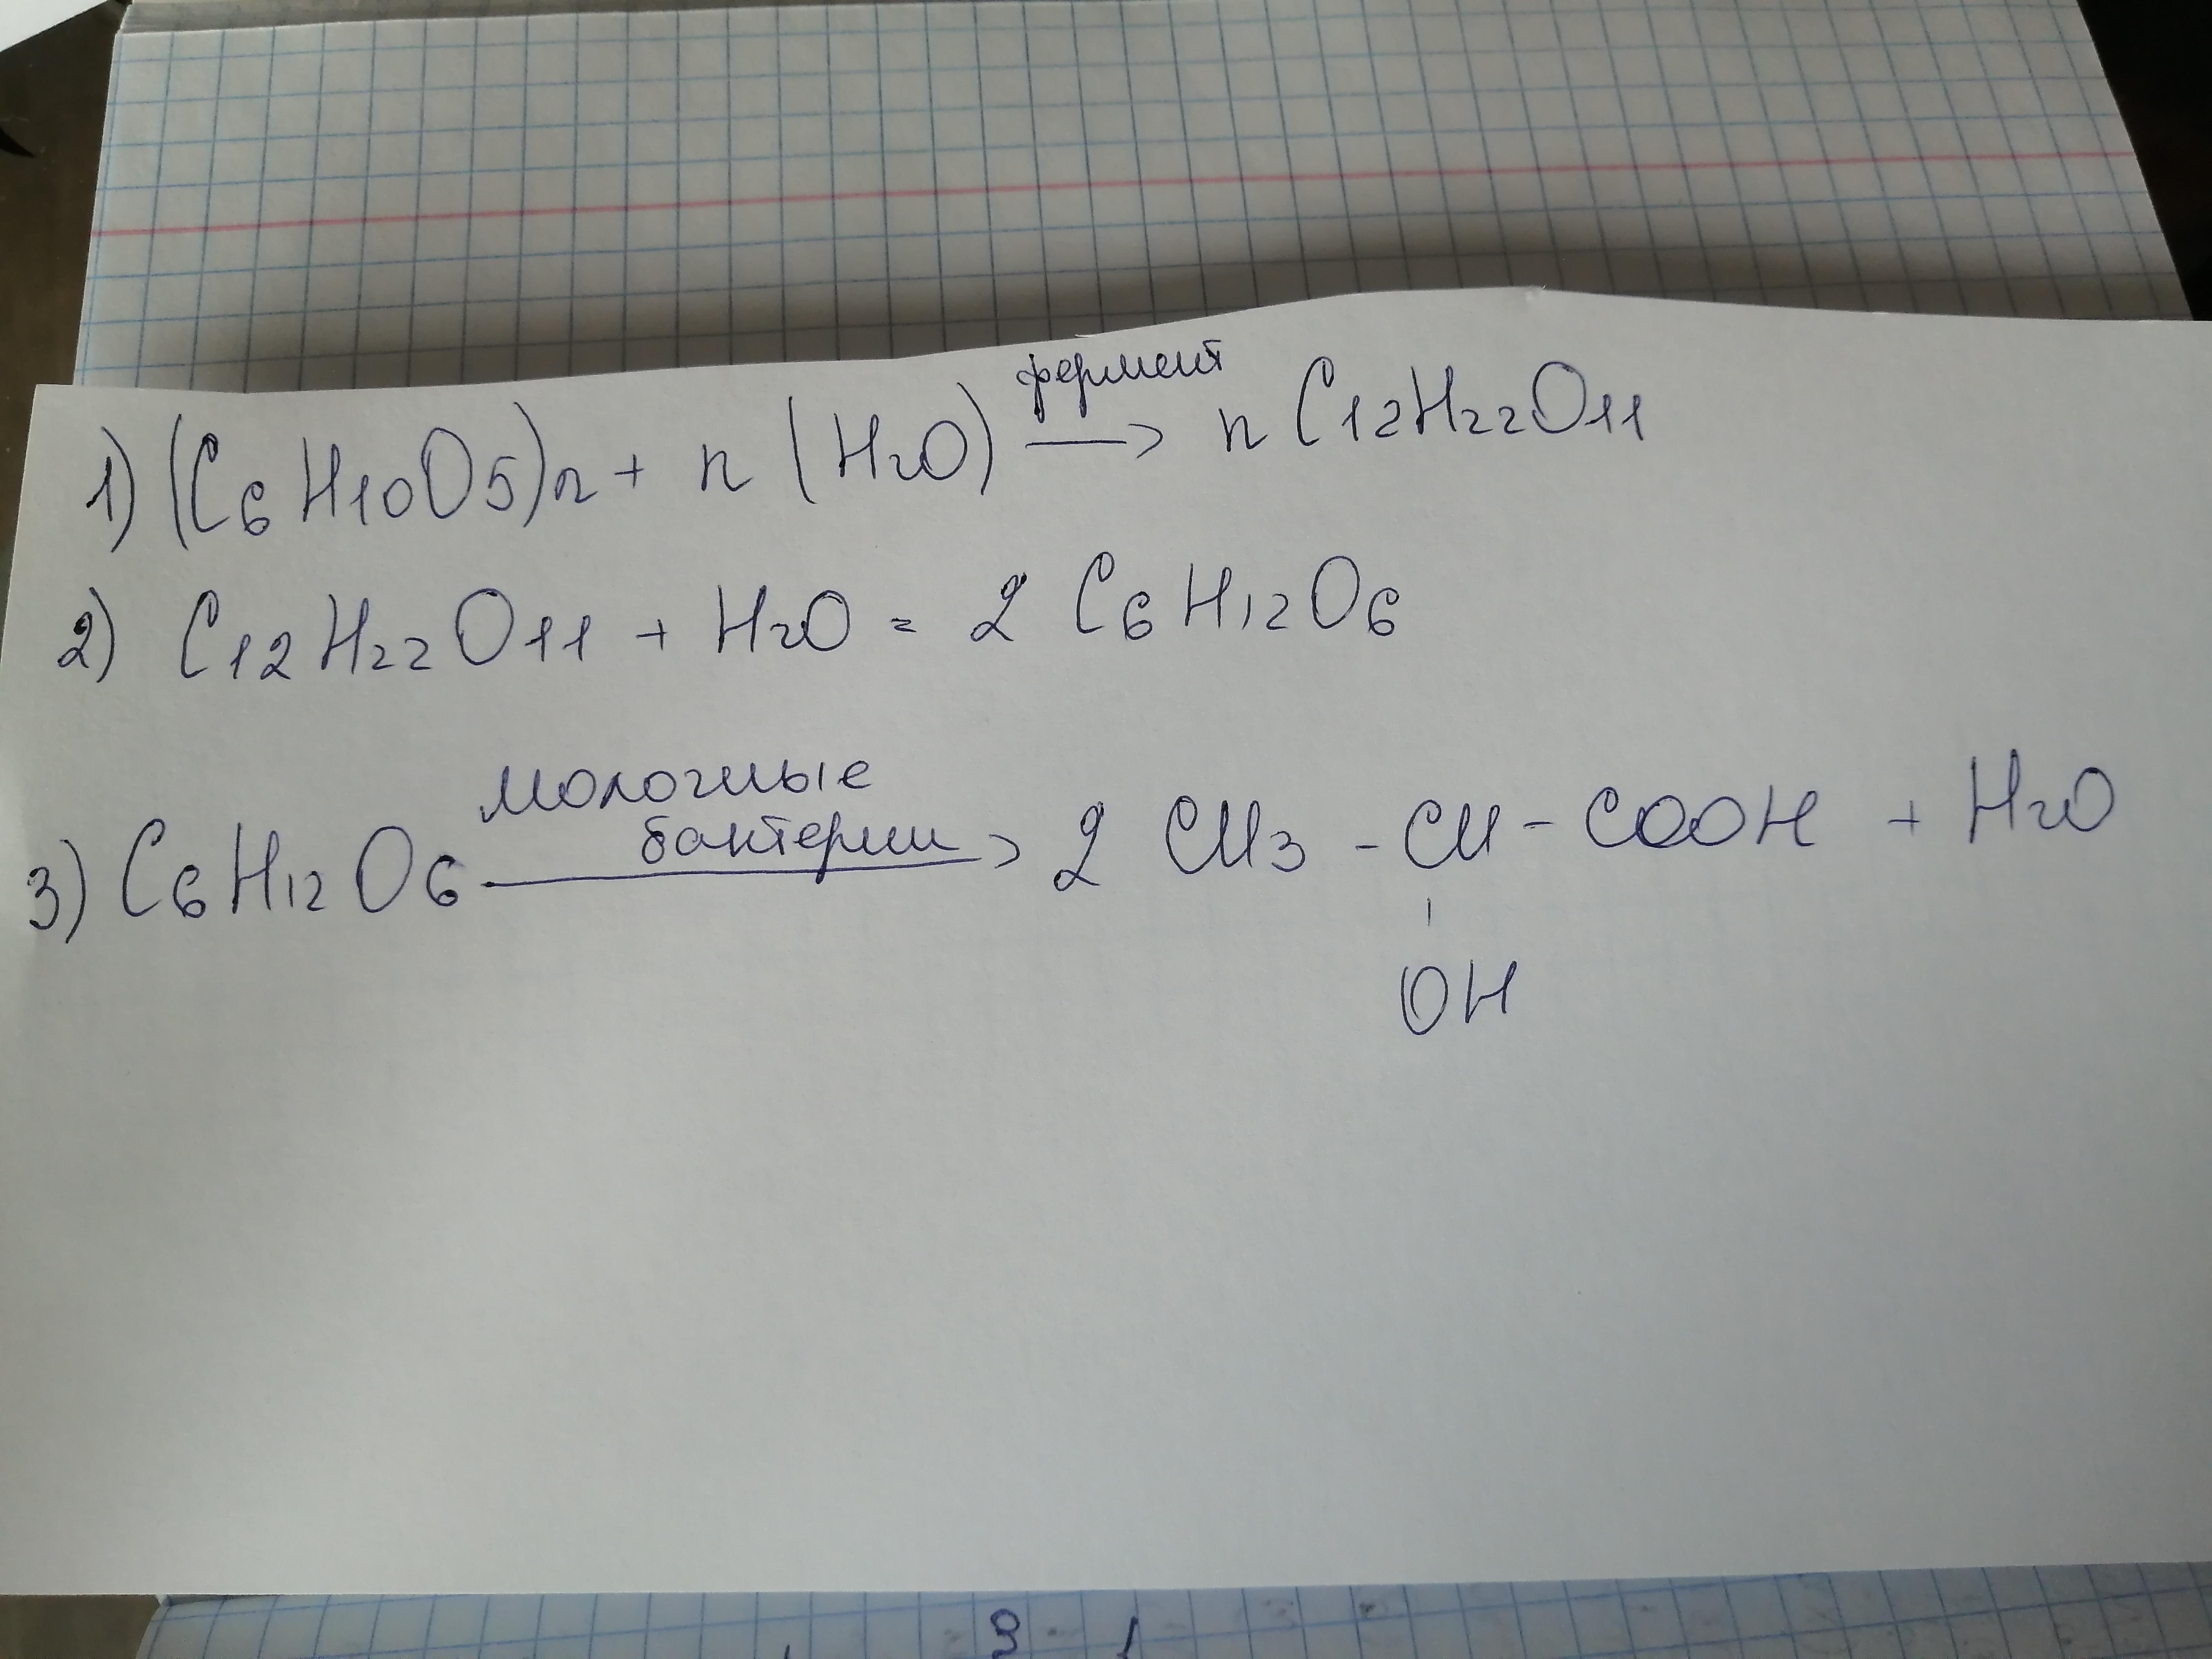 1) (C6H10O5)n + n (H2O) фермент → n C12H22O11
2) C12H22O11 + H2O = 2 C6H12O6
3) C6H12O6 молочные бактерии → 2 CH3 - CH - COOH + H2O
OH
3 1